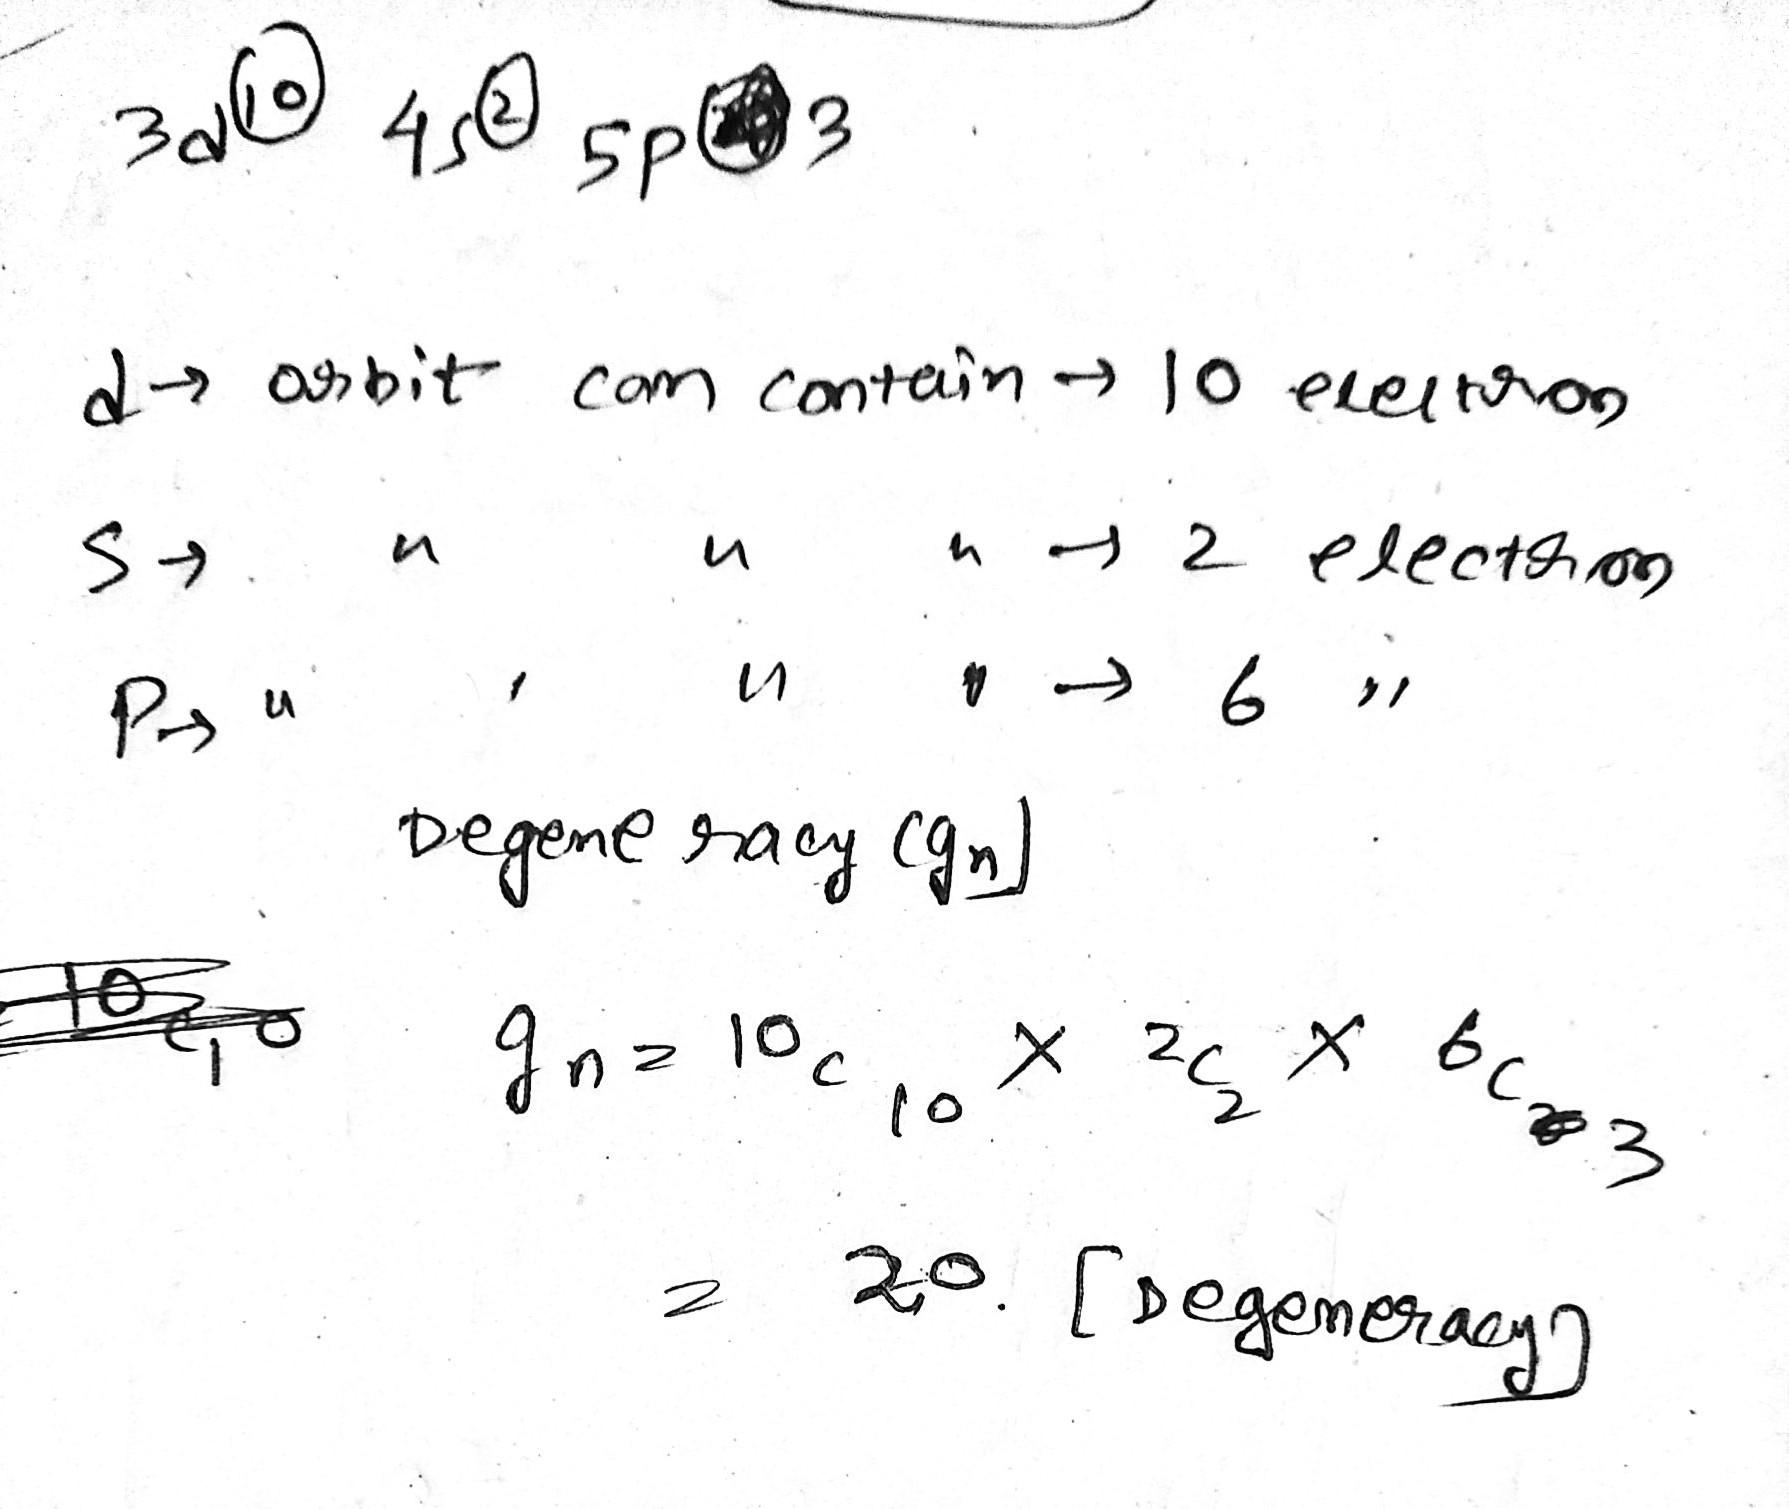 3d 10 4s 2 5p 3
d → orbit can contain → 10 electron
S → " " " → 2 electron
P → " ' " " → 6 "
Degeneracy (gn)
10c10 gn = 10c10 × 2c2 × 6c3
= 20. [Degeneracy]